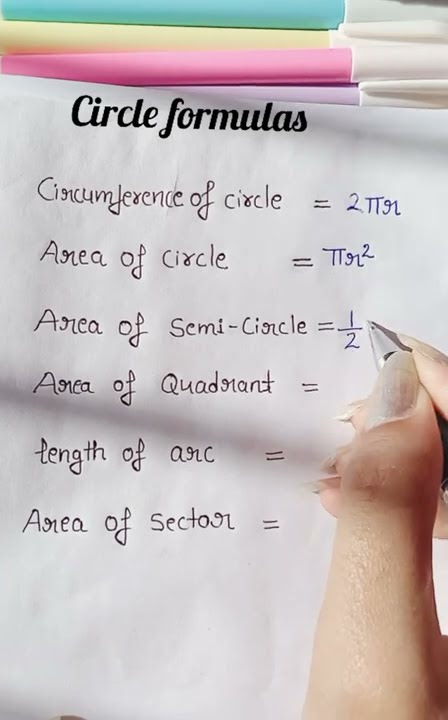 Circle formulas
Circumference of circle = 2πr
Area of circle = πr²
Area of Semi-Circle = 1/2
Area of Quadrant =
length of arc =
Area of Sector =